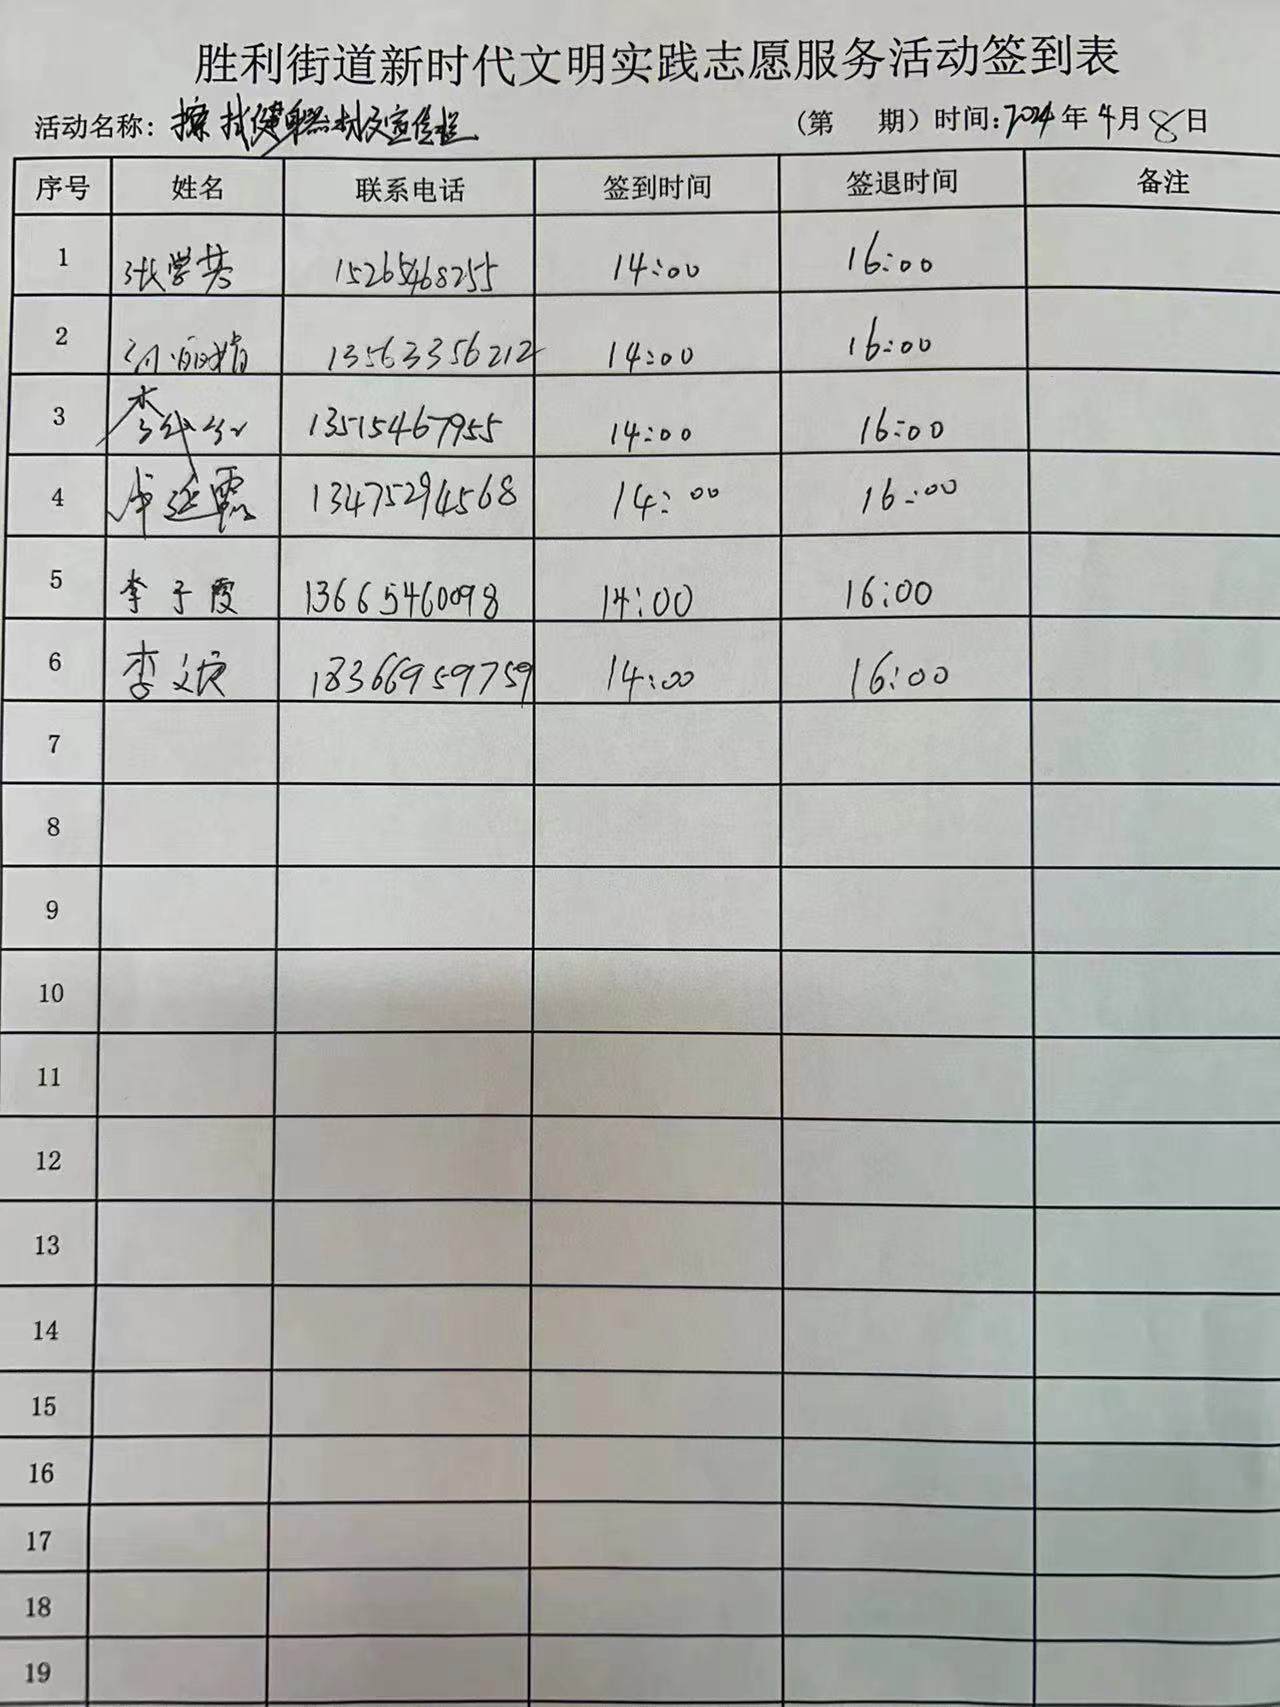 胜利街道新时代文明实践志愿服务活动签到表
活动名称：擦拭健身器材及宣传栏 （第 期）时间：2024年4月8日
序号 姓名 联系电话 签到时间 签退时间 备注
1 张学英 15265468255 14:00 16:00
2 丽娟 13563356212 14:00 16:00
3 李 13515467955 14:00 16:00
4 延霞 13475294568 14:00 16:00
5 李于霞 13665460098 14:00 16:00
6 李文 18366959759 14:00 16:00
7
8
9
10
11
12
13
14
15
16
17
18
19